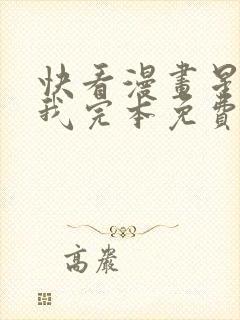 快看漫畫星
我完本免費
高嚴